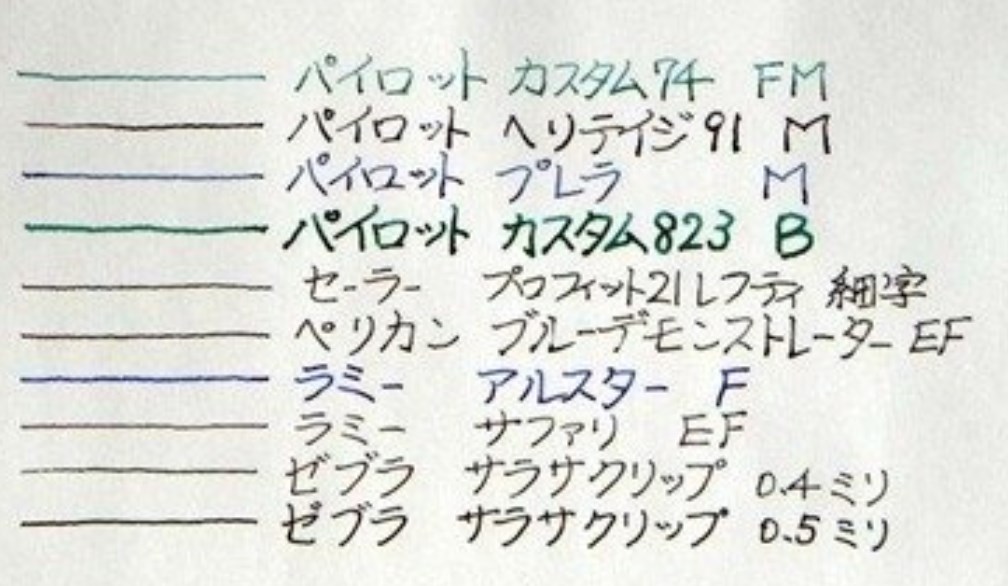 パイロット カスタム74 FM
パイロット ヘリテイジ91 M
パイロット プレラ M
パイロット カスタム823 B
セーラー プロフィット21レフティ 細字
ペリカン ブルーデモンストレーター EF
ラミー アルスター F
ラミー サファリ EF
ゼブラ サラサクリップ 0.4ミリ
ゼブラ サラサクリップ 0.5ミリ